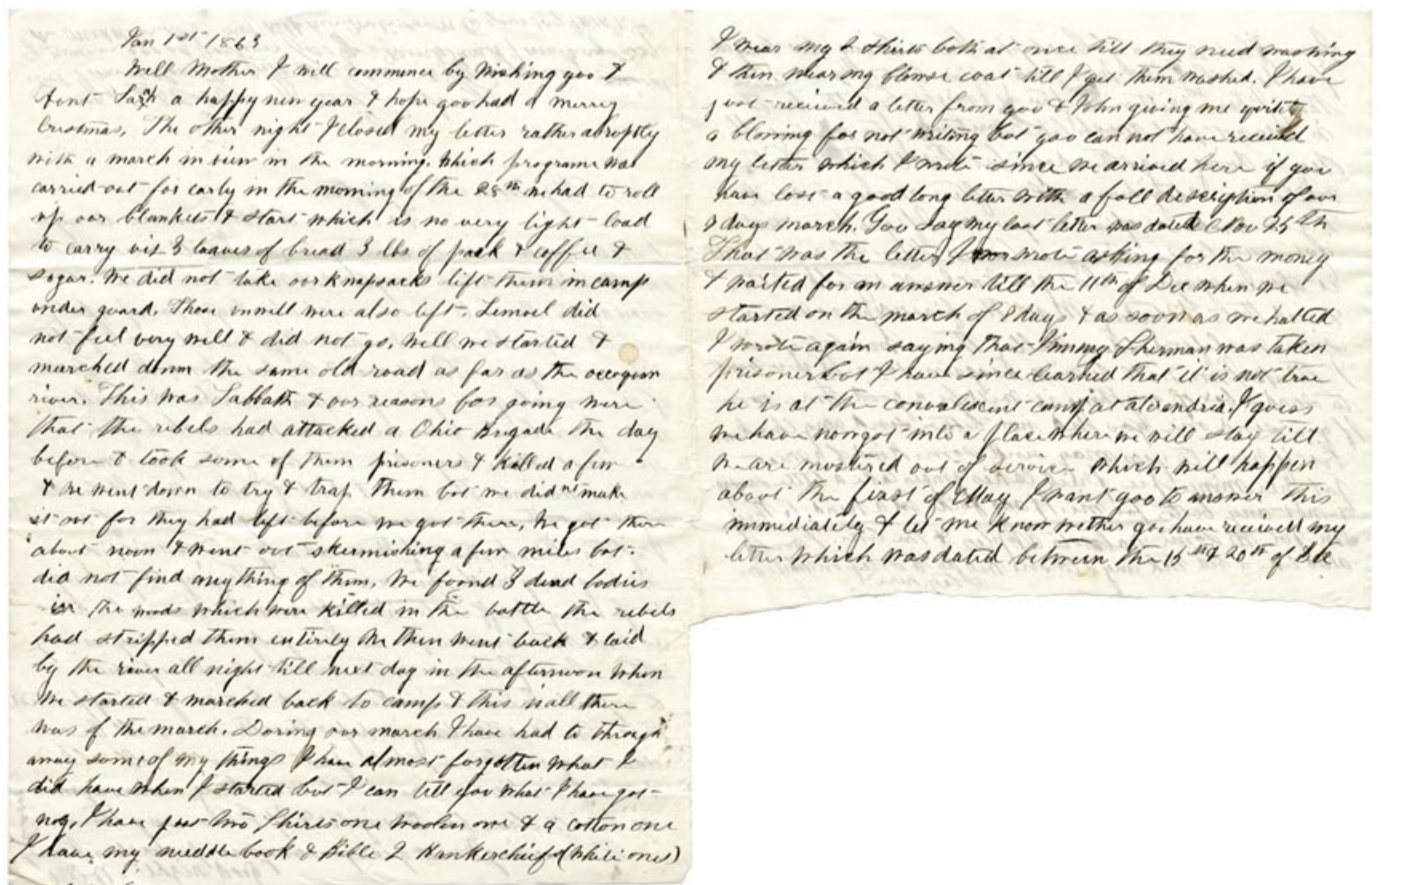 Jan 1st 1863
Well Mother I will commence by Wishing you &
Aunt Sarh a happy new year & hope you had a merry
Cristmas. The other night I closed my letter rather abruptly
with a march in view in the morning. Which programe was
carried out for early in the morning of the 28th we had to roll
up our blankets & start which is no very light load
to carry viz 3 loaves of bread 3 lbs of pork & coffee &
sugar. We did not take our knapsacks lift them in camp
under guard. Those unwell were also left. Lemuel did
not feel very well & did not go. Well we started &
marched down the same old road as far as the occoquon
river. This was Sabbath & our reasons for going were
that the rebels had attacked a Ohio Brigade the day
before & took some of them prisoners & killed a few
& we went down to try & trap them but we did nt make
it out for they had left before we got there. We got there
about noon & went out skermishing a few miles but
did not find anything of them. We found 3 dead bodies
in the woods which were killed in the battle the rebels
had stripped them entirely We then went back & laid
by the river all night till next day in the afternoon when
We started & marched back to camp & this is all there
was of the march. During our march I have had to through
away some of my things I have almost forgotten what I
did have when I started but I can tell you what I have got
now. I have just two Shirts one woolen one & a cotton one
I have my needle book & Bible 2 Hankerchief (White ones)
I wear my 2 shirts both at once till they need washing
& then wear my blouse coat till I get them washed. I have
just received a letter from you & John giving me quite
a blowing for not writing but you can not have received
my letter which I wrote since we arrived here if you
have lost a good long letter with a full description of our
8 days march. You say my last letter was dated Nov 25th
That was the letter I wrote asking for the money
& waited for an answer till the 11th of Dec when we
started on the march of 8 days & as soon as we halted
I wrote again saying that Jimmy Sherman was taken
prisoner but I have since learned that it is not true
he is at the convalescent camp at alexndria. I guess
we have now got into a place where we will stay till
we are mustered out of service which will happen
about the first of May I want you to answer this
immediately & let me know wether you have received my
letter which was dated between the 15th & 20th of Dec